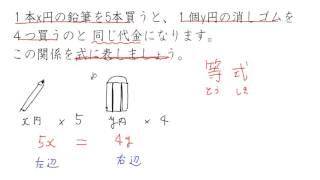 1本x円の鉛筆を5本買うと、1個y円の消しゴムを
4つ買うのと同じ代金になります。
この関係を式に表しましょう。
等式
とう しき
x円 × 5 y円 × 4
5x = 4y
左辺 右辺